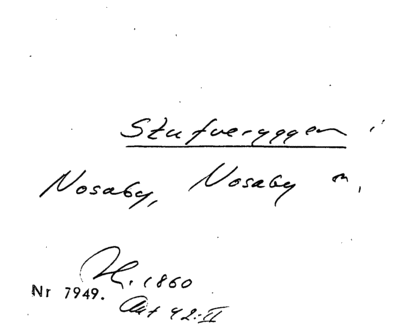 Stufveryggen i
Nosaby, Nosaby sn,
H. 1860
Nr 7949. Akt 42:II